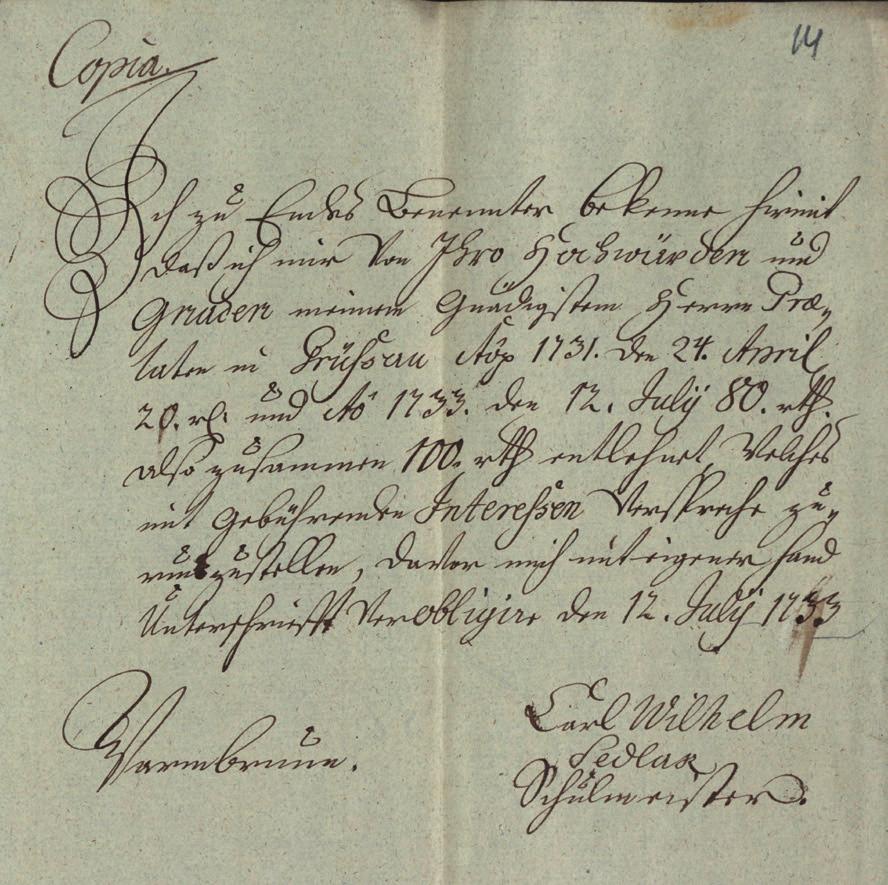 14
Copia.
Ich zu Endes Benennter bekenne hirmit
daß ich mir von Ihro Hochwürden und
Gnaden meinem Gnädigstem Herrn Præ-
laten in Grüssau Aõ 1731. den 24. April
20. rth. und Aõ 1733. den 12. Julÿ 80. rth.
also zusammen 100. rth entlehnet, Welches
mit gebührenden Interessen Verspreche zu-
rukzustellen, davor mich mit eigener Hand
Unterschrifft Verobligire den 12. Julÿ 1733
Carl Wilhelm
Sedlak
Warmbrunn.
Schulmeister.